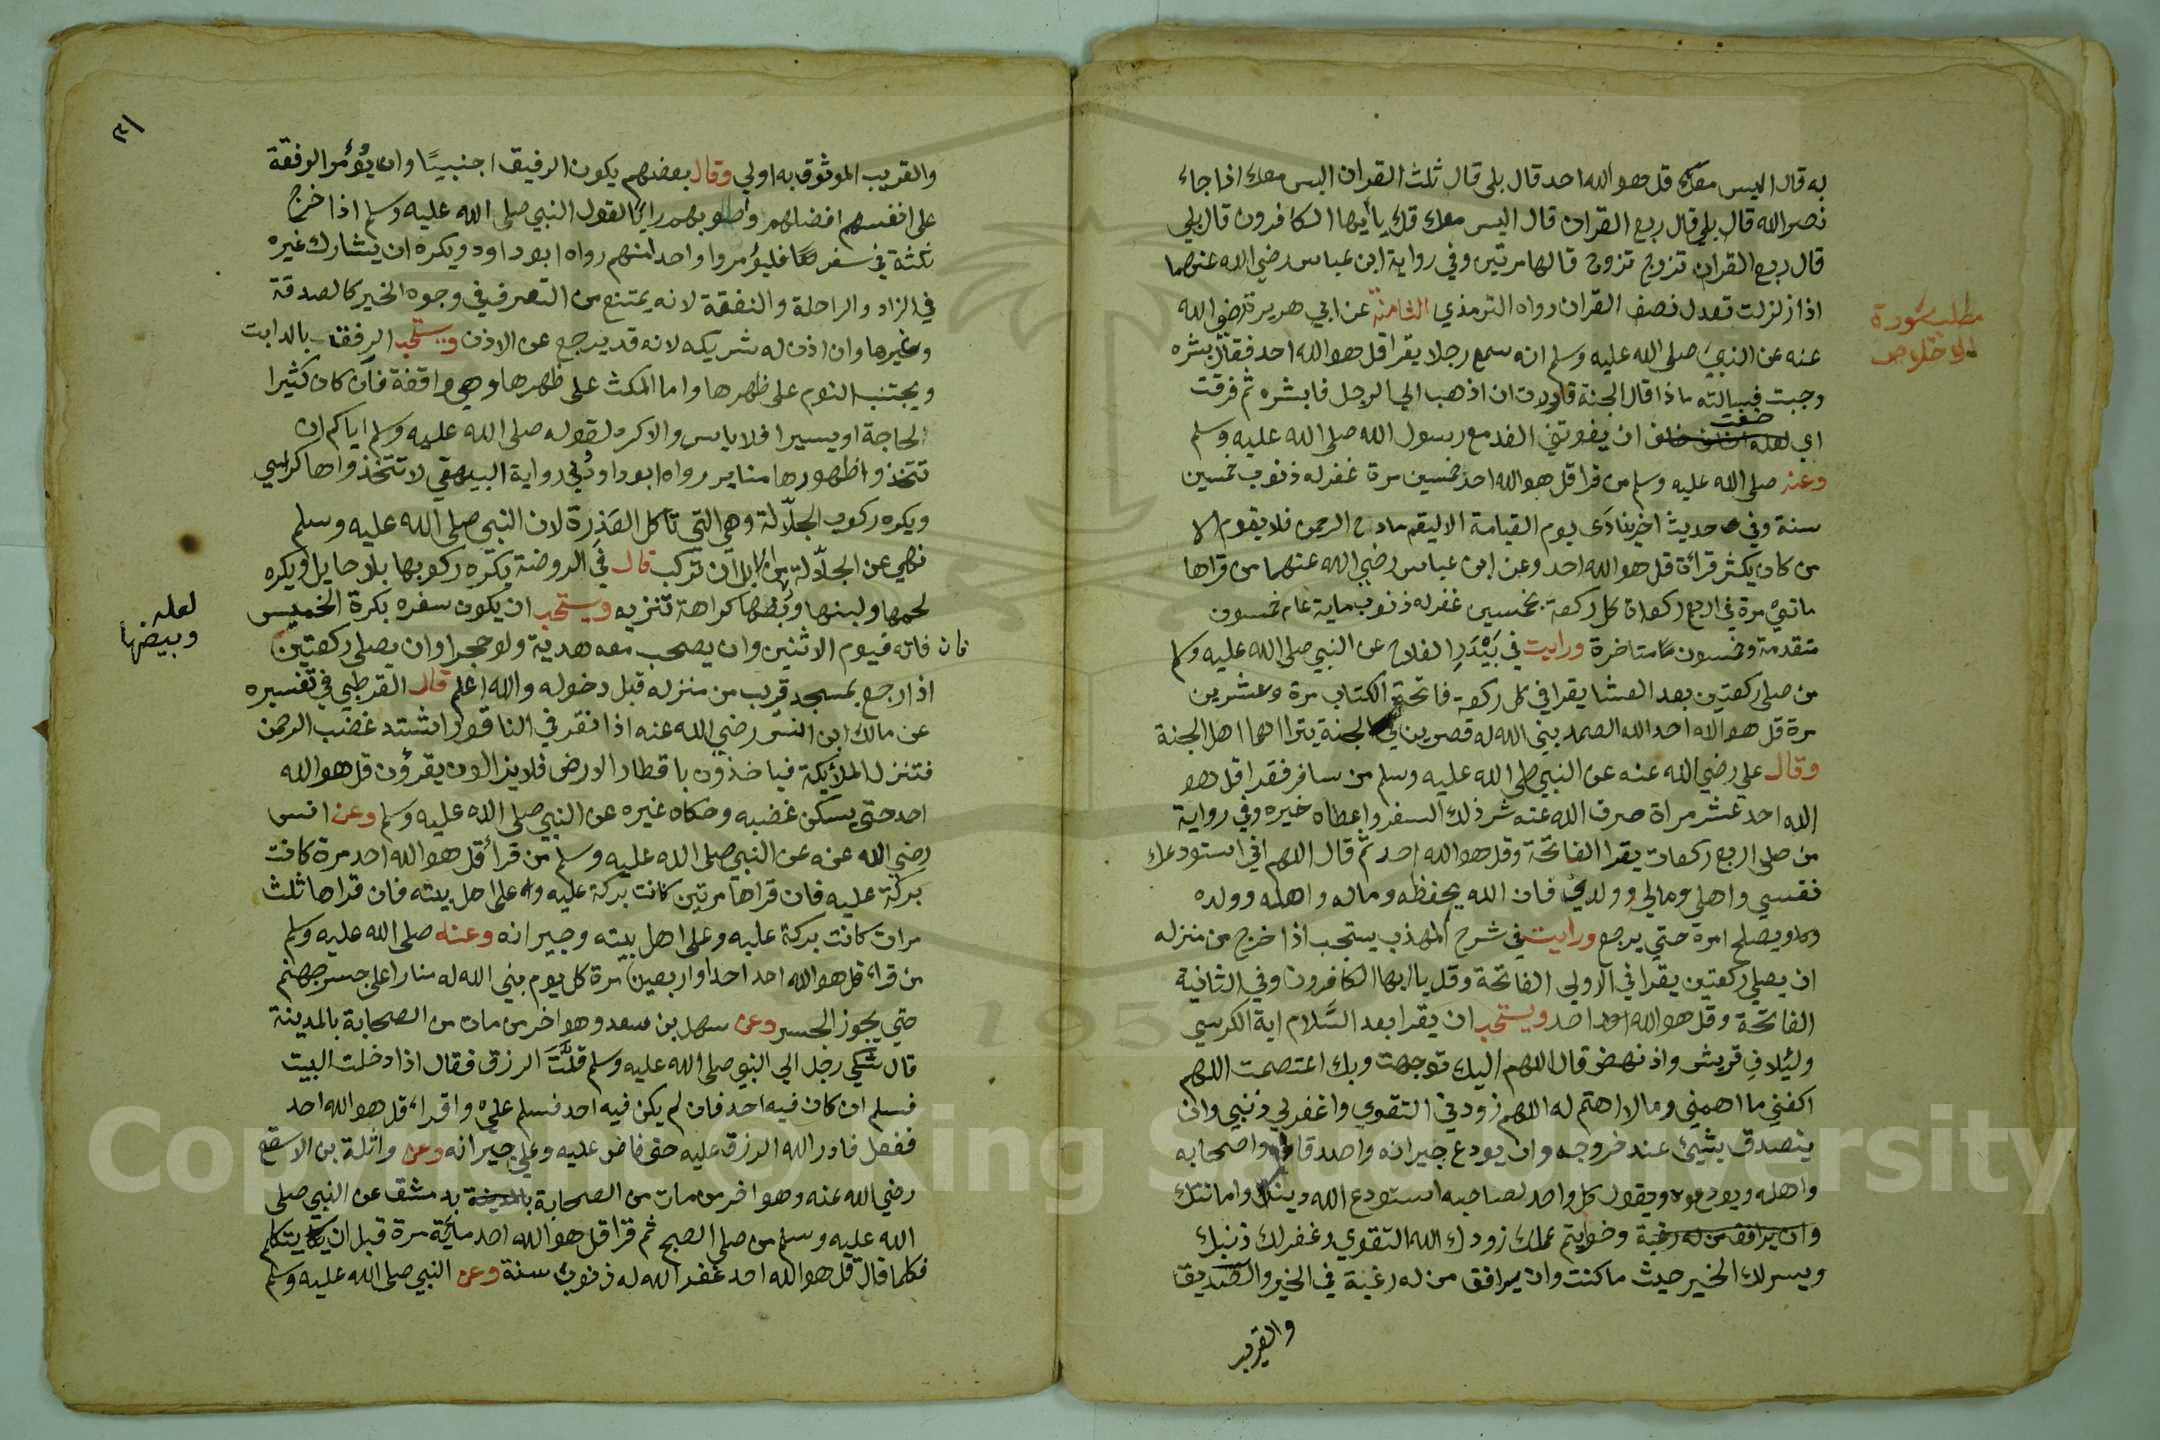 به قال اليس معك قل هو الله احد قال بلى قال ثلث القران اليس معك اذا جاء
نصر الله قال بلى قال ربع القران قال اليس معك قل ياأيها الكافرون قال بلي
قال ربع القران تزوج تزوج قالها مرتين وفي رواية ابن عباس رضي الله عنهما
اذا زلزلت تعدل نصف القران رواه الترمذي الثامنة عن ابي هريرة رضي الله
عنه عن النبي صلى الله عليه وسلم انه سمع رجلا يقرا قل هو الله احد فقال بشره
وجبت فسالته ماذا قال الجنة فاردت ان اذهب الي الرجل فابشره ثم فرقت
اي خفت ان يفوتني الغد مع رسول الله صلى الله عليه وسلم
وعنه صلى الله عليه وسلم من قرا قل هو الله احد خمسين مرة غفر له ذنوب خمسين
سنة وفي حديث اخر ينادى يوم القيامة الا ليقم مادح الرحمن فلا يقوم الا
من كان يكثر قرائة قل هو الله احد وعن ابن عباس رضي الله عنهما من قراها
مايتي مرة في اربع ركعات كل ركعة بخمسين غفر له ذنوب ماية عام خمسون
متقدمة وخمسون متاخرة ورايت في بَيْدَرِ الفلاح عن النبي صلى الله عليه وسلم
من صلى ركعتين بعد العشا يقرا في كل ركعة فاتحة الكتاب مرة وعشرين
مرة قل هو الله احد الله الصمد بنى الله له قصرين في الجنة يتراا هما اهل الجنة
وقال علي رضي الله عنه عن النبي صلى الله عليه وسلم من سافر فقرا قل هو
الله احد عشر مراة صرف الله عنه شر ذلك السفر واعطاه خيره وفي رواية
من صلى اربع ركعات يقرا الفاتحة وقل هو الله احد ثم قال اللهم اني استودعك
نفسي واهلي ومالي وولدي فان الله يحفظه وماله واهله وولده
ويصلح امره حتي يرجع ورايت في شرح المهذب يستحب اذا خرج من منزله
ان يصلي ركعتين يقرا في الاولى الفاتحة وقل يا ايها الكافرون وفي الثانية
الفاتحة وقل هو الله احد ويستحب ان يقرا بعد السَّلام اية الكرسي
ولئلاف قريش واذ نهض قال اللهم اليك توجهت وبك اعتصمت اللهم
اكفني ما اهمني وما لا اهتم له اللهم زودني التقوي واغفر لي ذنبي وان
يتصدق بشيئ عند خروجه وان يودع جيرانه واصدقاه واصحابه
واهله ويودعوه ويقول كل واحد لصاحبه استودع الله دينك وامانتك
وان يرافق من له رغبة وخواتم عملك زودك الله التقوي وغفر لك ذنبك
ويسر لك الخير حيث ما كنت وان يرافق من له رغبة في الخير والصديق
والقريب
مطلب سورة
الاخلاص
والقريب الموثوق به اولي وقال بعضهم يكون الرفيق اجنبيًا وان يؤمر الرفقة
على انفسهم افضلهم وأصوبهم رايا لقول النبي صلى الله عليه وسلم اذا خرج
ثلثة في سفر فليؤمروا واحدا منهم رواه ابو داود ويكره ان يشارك غيره
في الزاد والراحلة والنفقة لانه يمتنع من التصرف في وجوه الخير كالصدقة
وغيرها وان اذن له شريكه لانه قد يرجع عن الاذن ويستحب الرفق بالدابت
ويجتنب النوم على ظهرها واما المكث على ظهرها وهي واقفة فان كان كثيرا
لحاجة او يسيرا فلا باس والا كره لقوله صلى الله عليه وسلم اياكم ان
تتخذوا ظهورها منابر رواه ابو داود وفي رواية البيهقي لا تتخذواها كراسي
ويكره ركوب الجلّالة وهي التي تاكل العَذِرة لان النبي صلى الله عليه وسلم
نهي عن الجلّالة من الابل ان تركب قال في الروضة يكره ركوبها بلا حايل ويكره
لحمها ولبنها وبطها كراهة تنزيه ويستحب ان يكون سفره بكرة الخميس
فان فاته فيوم الاثنين وان يصحب معه هدية ولو حجرا وان يصلي ركعتين
اذا رجع بمسجد قريب من منزله قبل دخوله والله اعلم قال القرطبي في تفسيره
عن مالك ابن انس رضي الله عنه اذا نقر في الناقور اشتد غضب الرحمن
فتنزل الملائكة فياخذون باقطار الارض فلا يزالون يقرؤن قل هو الله
احد حتي يسكن غضبه وحكاه غيره عن النبي صلى الله عليه وسلم وعن انس
رضي الله عنه عن النبي صلى الله عليه وسلم من قرأ قل هو الله احد مرة كانت
بركة عليه فان قراها مرتين كانت بركة عليه وعلى اهل بيته فان قراها ثلث
مرات كانت بركة عليه وعلى اهل بيته وجيرانه وعنه صلى الله عليه وسلم
من قراء قل هو الله احد احدا واربعين مرة كل يوم بني الله له منارا على جسر جهنم
حتي يجوز الجسر وعن سهل بن سعد وهو اخر من مات من الصحابة بالمدينة
قال شكي رجل الي النبي صلى الله عليه وسلم قلَّتَ الرزق فقال اذا دخلت البيت
فسلم ان كان فيه احد فان لم يكن فيه احد فسلم علي واقراء قل هو الله احد
ففعل فادر الله الرزق عليه حتى فاض عليه وعلى جيرانه وعن واثلة بن الاسقع
رضي الله عنه وهو اخر من مات من الصحابة بدمشق عن النبي صلى
الله عليه وسلم من صلى الصبح ثم قرا قل هو الله احد مائة مرة قبل ان يتكلم
فكلما قال قل هو الله احد غفر الله له ذنوب سنة وعن النبي صلى الله عليه وسلم
لعله
وبيضها
Copyright © King Saud University
195